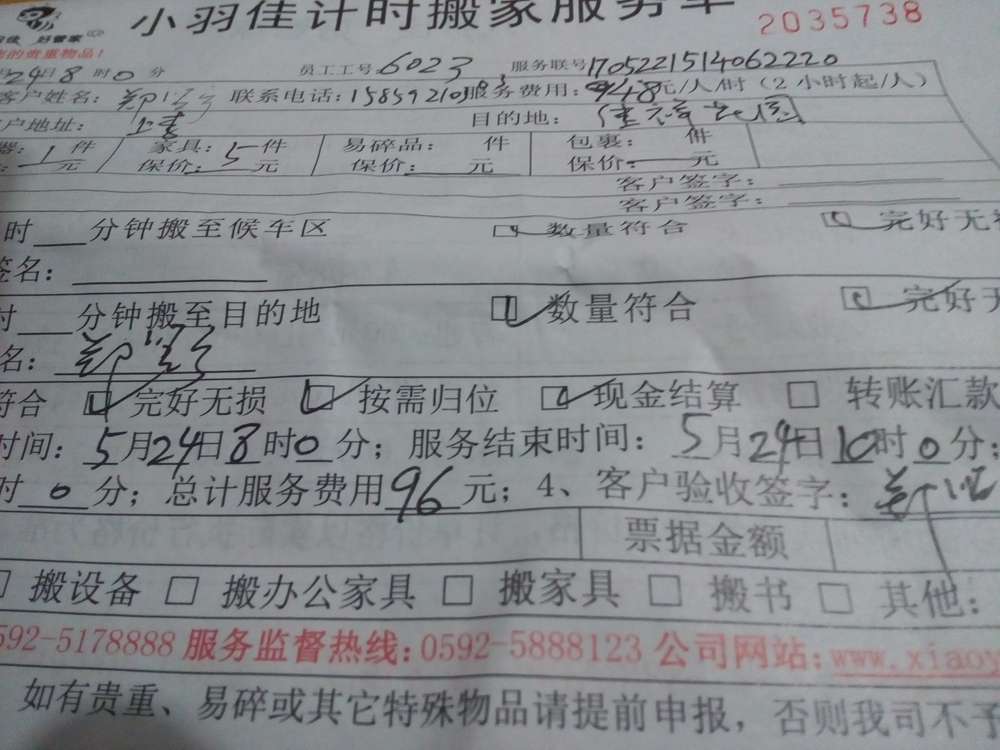 小羽佳计时搬家服务单
好管家
的贵重物品! 2035738
24日8时0分 员工工号6023 服务联号1705221514062220
客户姓名: 郑 联系电话: 服务费用: 48元/人/时(2小时起/人)
户地址: 目的地: 花园
器: 1件 家具: 5件 易碎品: 件 包裹: 件
元 保价: 元 保价: 元 保价: 元
客户签字:
客户签字:
时 分钟搬至候车区 数量符合 完好无
签名:
时 分钟搬至目的地 数量符合 完好无
名: 郑
符合 完好无损 按需归位 现金结算 转账汇款
时间: 5月24日8时0分; 服务结束时间: 5月24日10时0分;
时0分; 总计服务费用96元; 4、客户验收签字: 郑
票据金额
搬设备 搬办公家具 搬家具 搬书 其他:
592-5178888 服务监督热线: 0592-5888123 公司网站: www.xiaoy
如有贵重、易碎或其它特殊物品请提前申报, 否则我司不予